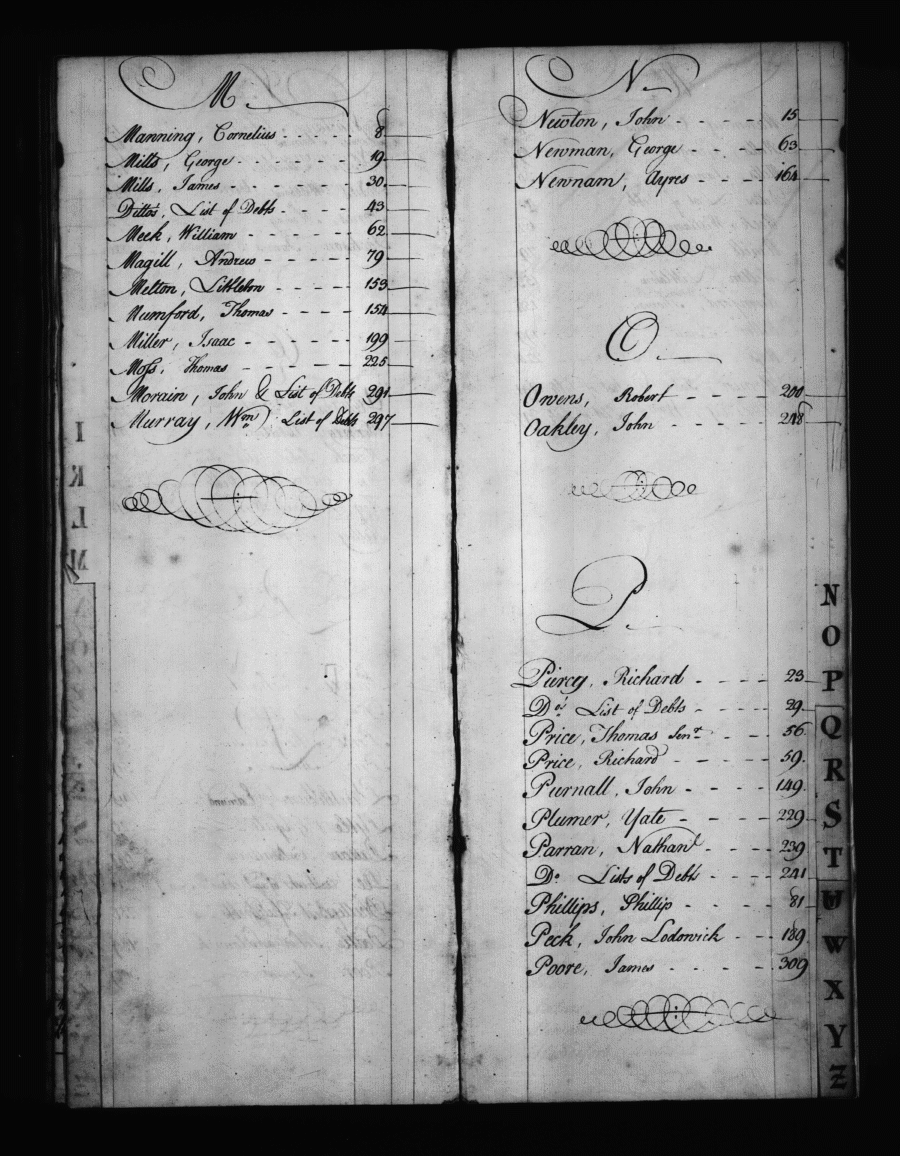 M.
Manning, Cornelius - - - - 8
Mills, George - - - - - - 19
Mills, James - - - - - - 30
Dittos, List of Debts - - - - 43
Meek, William - - - - - - 62
Magill, Andrew - - - - - 79
Melton, Littleton - - - - - 153
Mumford, Thomas - - - - 154
Miller, Isaac - - - - - - 199
Moss, Thomas - - - - - - 225
Morain, John & List of Debts 291
Murray, Wm List of Debts 297
I
K
L
M
N.
Newton, John - - - - - 15
Newman, George - - - - 63
Newnam, Ayres - - - - 164
O.
Owens, Robert - - - - 200
Oakley, John - - - - - 248
P.
Richard - - - - 23
Do List of Debts - - - - 29
Price, Thomas Senr - - - 56
Price, Richard - - - - - 59
Purnall, John - - - - 149
Plumer, Yate - - - - 229
Parran, Nathanl - - - - 239
Do Lists of Debts - - - 241
Phillips, Phillip - - - - 81
Peck, John Lodowick - - - 189
Poore, James - - - - - 309
N
O
P
Q
R
S
T
U
W
X
Y
Z